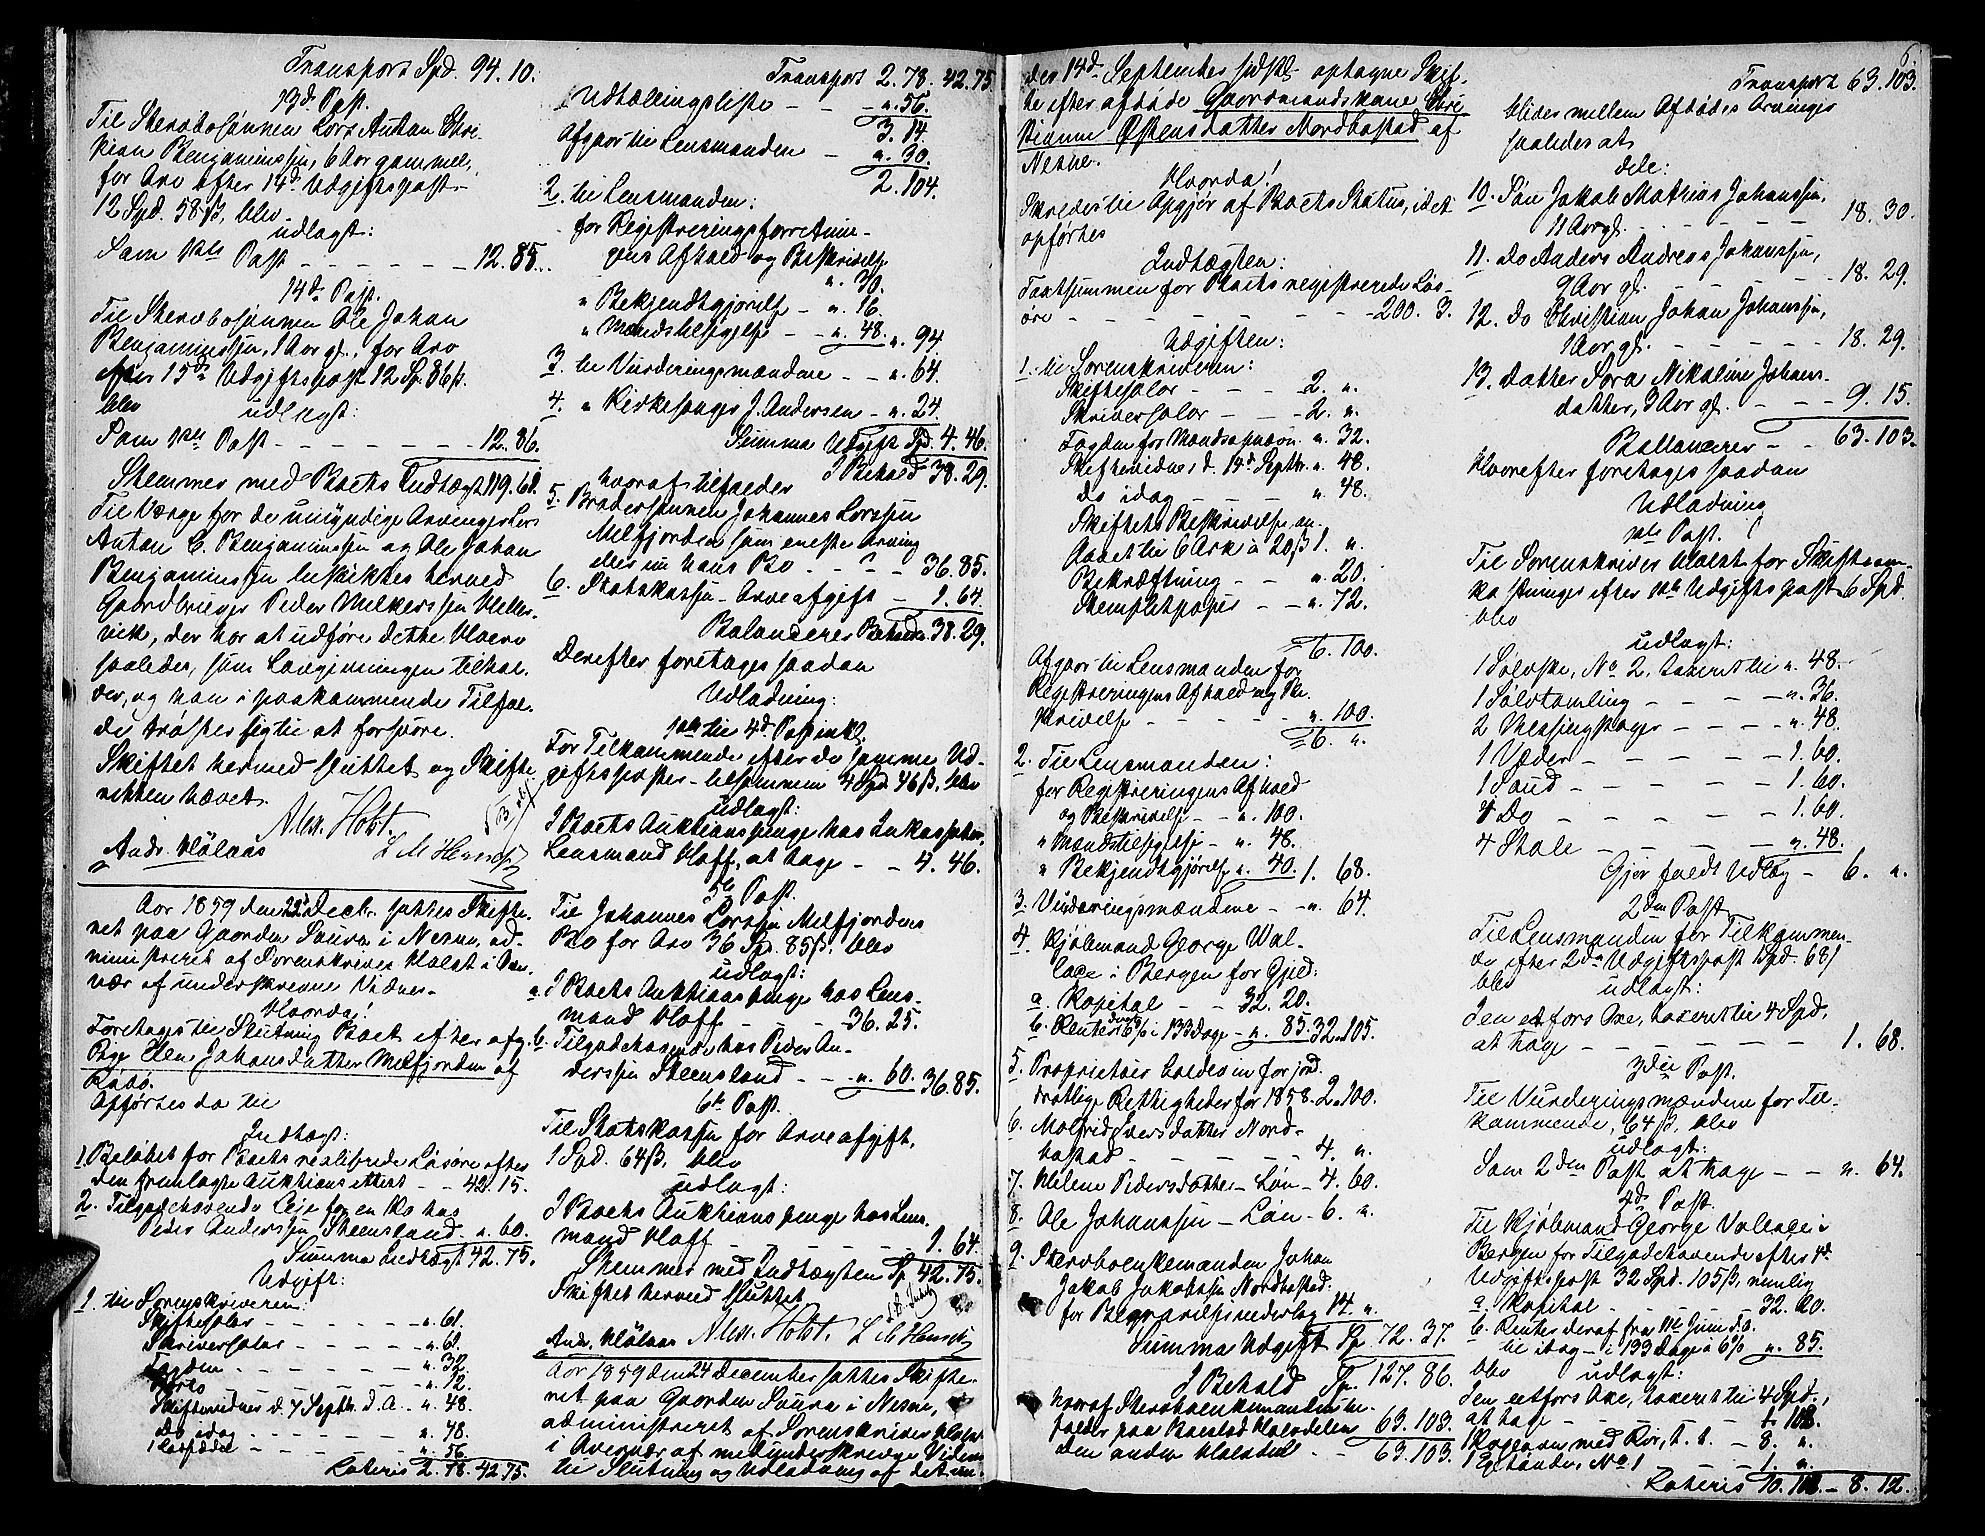 Transport Spd. 94. 10.
13de Post.
Til Stervbosønnen Lars Anthon Chri-
stian Benjaminssen, 6 Aar gammel,
for Arv efter 14de Udgiftspost
12 Spd. 58 ß, blev
udlagt:
Som 12te Post - - - - - - 12. 85.
14de Post.
Til Stervbosønnen Ole Johan
Benjaminssen, 1 Aar gl., for Arv
efter 15de Udgiftspost 12 Sp. 86 ß.
blev udlagt:
Som Post - - - - - - 12. 86.
Stemmer med Boets Indtægt 119. 61.
Til Værge for de umyndige Arvinger Lars
Anton C. Benjaminssen og Ole Johan
Benjaminssen beskikkes herved
Gaardbruger Peder Melkerssen Heller-
vik, der har at udføre dette Hverv
saaledes, som Lovgivningen tilhol-
der, og han i paakommende Tilfæl-
de trøster sig til at forsvare.
Skiftet hermed sluttet og Skifte-
retten hævet.
Alex. Holst.
Andr. Hölaas L M Hens
Aar 1859 den 22de Decbr. sattes Skifte-
ret paa Gaarden Saura i Nesne, ad-
ministreret af Sorenskriver Holst i Over-
vær af underskrevne Vidner.
Hvorda!
Foretoges til Slutning Boet efter afg.
Pige Elen Johansdatter Melfjorden af
Rødø.
Opførtes da til
Indtægt:
1. Beløbet for Boets realiserede Løsøre efter
den fremlagte Auktionsattest - - 42. 15.
2. Tilgodehavende Leje for en Ko hos
Peder Anderssen Steensland " 60.
Summa Indtægt 42. 75.
Udgift:
1. til Sorenskriveren:
Skiftesalær - - - - - - ". 61.
Skriversalær - - - - - ". 61.
Fogden - - - - - - ". 32.
- - - - - - ". 12.
Skiftevidner d. 7 Septbr. d. A. - ". 48.
Do idag - - - - - - ". 48.
- - - - - - ". 56
Lateris 2. 78. 42. 75.
Transport 2. 78. 42. 75
Udtællingsliste - - - ". 56.
3. 14.
Afgaar til Lensmanden - ". 30.
2. 104.
2. til Lensmanden:
for Registreringsforretnin-
gens Afhold og Beskrivelse
". 30.
" Bekjendtgjørelse - ". 16.
" Mandstilsigelse - ". 48. ". 94.
3. til Vurderingsmændene - - ". 64.
4. " Kirkesanger J. Andersen - ". 24.
Summa Udgift Spd. 4. 46.
I Behold 38. 29.
hvoraf tilfalder
5. Brodersønnen Johannes Larssen
Melfjorden som eneste Arving
eller nu hans Bo - - - 36. 85.
6. Statskassen - Arveafgift - 1. 64.
Balancerer Beholdn. 38. 29.
Derefter foretoges saadan
Udlodning:
1ste til 4de Post inkl.
For Tilkommende efter de samme Ud-
giftsposter - tilsammen 4 Spd. 46 ß. blev
udlagt:
I Boets Auktionspenge hos Inkassator,
Lensmand Hoff, at tage - - 4. 46.
5te Post.
Til Johannes Larssen Melfjordens
Bo for Arv 36 Sp. 85 ß. blev
udlagt:
a. I Boets Auktionspenge hos Lens-
mand Hoff - - - 36. 25.
b. Tilgodehavende hos Peder An-
derssen Steensland - - ". 60. 36. 85.
6te Post.
Til Statskassen for Arveafgift,
1 Spd. 64 ß, blev
udlagt:
I Boets Auktionspenge hos Lens-
mand Hoff - - - - - 1. 64.
Stemmer med Indtægten Sp. 42. 75.
Skiftet hermed sluttet.
Andr. Hölaas Alex. Holst. L M Hens
Aar 1859 den 24 December sattes Skifte-
ret paa Gaarden Saura i Nesne,
administreret af Sorenskriver Holst
i Overvær af medundertegnede Vidner
til Slutning og Udlodning af det un-
der 14de September sidstl. optagne Skif-
te efter afdøde Gaardmandskone Chri-
stianna Østensdatter Nordbostad af
Nesne.
Hvorda!
Skredes til Opgjør af Boets Status, idet
opførtes
Indtægten:
Taxtsummen for Boets registrerede Løs-
øre - - - - - - 200. 3.
Udgiften:
1. til Sorenskriveren:
Skiftesalær - - - 2. ".
Skriversalær - - - 2. ".
Fogden for Mandsopnævn. ". 32.
Skiftevidner d. 14de Septbr. ". 48.
Do idag - - - - ". 48.
Skiftets Beskrivelse an-
slaaet til 6 Ark à 20 ß 1. ".
Bekræftning - - ". 20.
Stemplet papir - - ". 72.
6. 100.
Afgaar til Lensmanden for
Registreringens Afhold og Be-
skrivelse - - - - ". 100.
6. ".
2. Til Lensmanden:
for Registreringens Afhold
og Beskrivelse - - ". 100.
" Mandstilsigelse - ". 48.
" Bekjendtgjørelse ". 40. 1. 68.
3. Vurderingsmændene - - ". 64.
4. Kjøbmand George Wal-
lace i Bergen for Gjeld:
a. Kapital - - 32. 20.
b. Renter deraf 6% i 133 Dage - ". 85. 32. 105.
5. Proprietair Coldevin for jord-
drotlige Rettigheder for 1858. 2. 100.
6. Malfrid Iversdatter Nord-
bostad - - - - - 4. ".
7. Helene Pedersdatter - Løn - 4. 60.
8. Ole Johanssen - Løn - 6. ".
9. Stervboenkemanden Johan
Jakob Jakobssen Nordbostad:
for Begravelsesudlæg 14. ".
Summa Udgift Sp. 72. 37.
I Behold Sp. 127. 86.
hvoraf Stervboenkemanden til-
falder paa Boeslod Halvdelen 63. 103.
den anden Halvdel - - 63. 103.
6.
Transport 63. 103.
blider mellem Afdødes Arvinger
saaledes at
dele:
10. Søn Jakob Mathias Johanssen,
11 Aar gl. - - - - - 18. 30.
11. Do Anders Andreas Johanssen,
9 Aar gl. - - - - - 18. 29.
12. Do Christian Johan Johanssen,
1 Aar gl. - - - - - 18. 29.
13. Datter Sara Nikoline Johans-
datter, 3 Aar gl. - - - 9. 15.
Ballancerer - - 63. 103.
Hvorefter foretoges saadan
Udlodning
1ste Post.
Til Sorenskriver Holst for Skifteom-
kostninger efter 1ste Udgiftspost 6 Spd.
blev
udlagt:
1 Sølvske, No 2, taxeret til ". 48.
1 Sølvtomling - - - - ". 36.
2 Messingstager - - - - ". 48.
1 Væder - - - - - 1. 60.
1 Saud - - - - - 1. 60.
1 Do - - - - - 1. 60.
4 Stole - - - - - ". 48.
Gjør fuldt Udlæg - 6. ".
2den Post
Til Lensmanden for Tilkommen-
de efter 2den Udgiftspost 1 Spd. 68 ß
blev udlagt:
I en etfors Oxe, taxeret til 4 Spd.
at tage - - - - - - 1. 68.
3die Post.
Til Vurderingsmændene for Til-
kommende, 64 ß, blev
udlagt:
Som 2den Post at tage - - ". 64.
4de Post.
Til Kjøbmand George Vallace i
Bergen for Tilgodehavende efter 4de
Udgiftspost 32 Spd. 105 ß, nemlig
a. Kapital - - - - 32. 20.
b. Renter deraf fra 11te Juni d. A.
til idag - i 133 Dage à 6% ". 85.
blev udlagt:
I en etfors Oxe, taxeret til 4 Spd.,
at tage - - - - - 1. 108.
1 Kogeovn med Rør, t. t. - 8. ".
1 Egetønde, No 1 - - - 1. ".
Lateris 10. 108. - 8. 12.